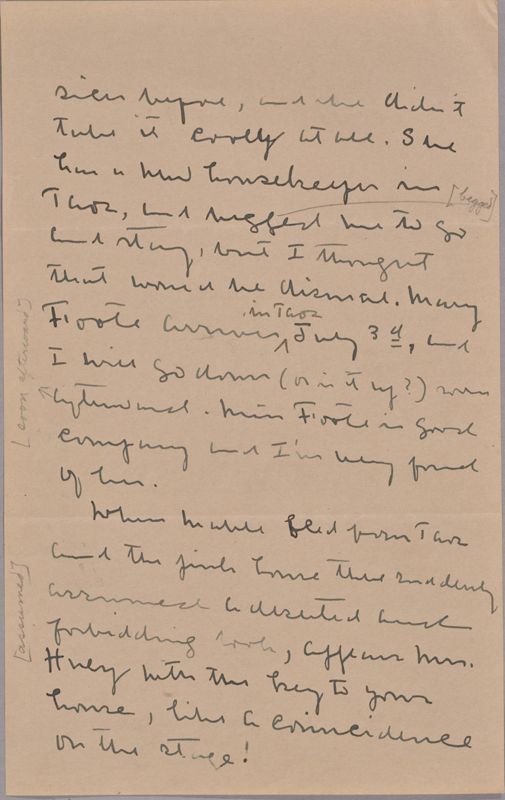 sick before, and she didn't
take it coolly at all. She
has a new housekeeper in
[begged]
Taos, and begged me to go
and stay, but I thought
that would be dismal. Mary
Foote arrives in Taos July 3d, and
I will go down (or is it up?) soon
[soon afterward]
afterward. Miss Foote is good
company and I'm very fond
of her.
When Mabel fled from Taos
and the pink house there suddenly
[assumed]
assumed a deserted and
forbidding look, appears Mrs.
Huey with the key to your
house, like a coincidence
on the stage!